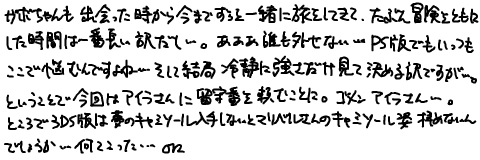 ガボちゃんも出会った時から今までずっと一緒に旅をしてきて、たぶん冒険をともに
した時間は一番長い訳だしぃ。あああ誰も外せない… PS版でもいつも
ここで悩むんですよねぃ… そして結局 冷静に強さだけ見て決める訳ですがぃ。
ということで今回はアイラさんに留守番を頼むことに。ゴメン アイラさんぃ。
ところで3DS版は夢のキャミソール入手しないとマリベルさんのキャミソール姿 拝めないん
でしょうかぃ… 何てこった… orz